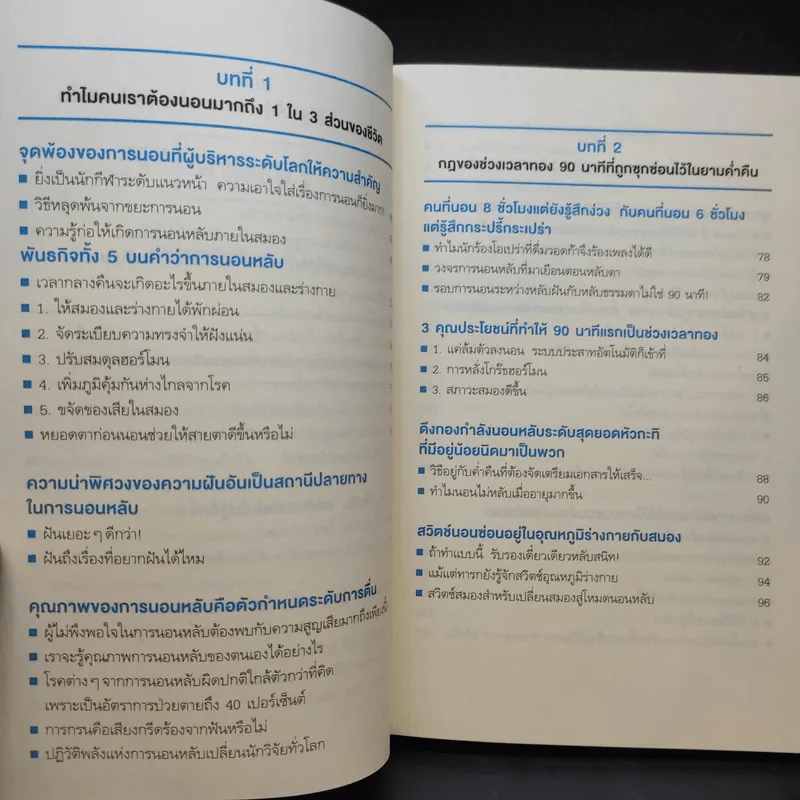 บทที่ 1
ทำไมคนเราต้องนอนมากถึง 1 ใน 3 ส่วนของชีวิต
จุดพ้องของการนอนที่ผู้บริหารระดับโลกให้ความสำคัญ
■ ยิ่งเป็นนักกีฬาระดับแนวหน้า ความเอาใจใส่เรื่องการนอนก็ยิ่งมาก!
■ วิธีหลุดพ้นจากขยะการนอน
■ ความรู้ก่อให้เกิดการนอนหลับภายในสมอง
พันธกิจทั้ง 5 บนคำว่าการนอนหลับ
■ เวลากลางคืนจะเกิดอะไรขึ้นภายในสมองและร่างกาย
■ 1. ให้สมองและร่างกายได้พักผ่อน
■ 2. จัดระเบียบความทรงจำให้ฝังแน่น
■ 3. ปรับสมดุลฮอร์โมน
■ 4. เพิ่มภูมิคุ้มกันห่างไกลจากโรค
■ 5. ขจัดของเสียในสมอง
■ หยอดตาก่อนนอนช่วยให้สายตาดีขึ้นหรือไม่
ความน่าพิศวงของความฝันอันเป็นสถานีปลายทาง
ในการนอนหลับ
■ ฝันเยอะๆ ดีกว่า!
■ ฝันถึงเรื่องที่อยากฝันได้ไหม
คุณภาพของการนอนหลับคือตัวกำหนดระดับการตื่น
■ ผู้ไม่พึงพอใจในการนอนหลับต้องพบกับความสูญเสียมากถึงเพียงนี้
■ เราจะรู้คุณภาพการนอนหลับของตนเองได้อย่างไร
■ โรคต่างๆ จากการนอนหลับผิดปกติใกล้ตัวกว่าที่คิด
เพราะเป็นอัตราการป่วยตายถึง 40 เปอร์เซ็นต์
■ การกรนคือเสียงกรีดร้องจากฟันหรือไม่
■ ปฏิวัติพลังแห่งการนอนหลับเปลี่ยนนักวิจัยทั่วโลก
บทที่ 2
กฎของช่วงเวลาทอง 90 นาทีที่ถูกซุกซ่อนไว้ในยามค่ำคืน
คนที่นอน 8 ชั่วโมงแต่ยังรู้สึกง่วง กับคนที่นอน 6 ชั่วโมง
แต่รู้สึกกระปรี้กระเปร่า
■ ทำไมนักร้องโอเปร่าที่ดื่มวอดก้าจึงร้องเพลงได้ดี 78
■ วงจรการนอนหลับที่มาเยือนตอนหลับตา 79
■ รอบการนอนระหว่างหลับฝันกับหลับธรรมดาไม่ใช่ 90 นาที! 82
3 คุณประโยชน์ที่ทำให้ 90 นาทีแรกเป็นช่วงเวลาทอง
■ 1. แค่ล้มตัวลงนอน ระบบประสาทอัตโนมัติก็เข้าที่ 84
■ 2. การหลั่งโกร๊ธฮอร์โมน 85
■ 3. สภาวะสมองดีขึ้น 86
ดึงกองกำลังนอนหลับระดับสุดยอดหัวกะทิ
ที่มีอยู่น้อยนิดมาเป็นพวก
■ วิธีอยู่กับค่ำคืนที่ต้องจัดเตรียมเอกสารให้เสร็จ... 88
■ ทำไมนอนไม่หลับเมื่ออายุมากขึ้น 90
สวิตช์นอนซ่อนอยู่ในอุณหภูมิร่างกายกับสมอง
■ ถ้าทำแบบนี้ รับรองเดี๋ยวเดียวหลับสนิท! 92
■ แม้แต่ทารกยังรู้จักสวิตช์อุณหภูมิร่างกาย 94
■ สวิตช์สมองสำหรับเปลี่ยนสมองสู่โหมดนอนหลับ 96